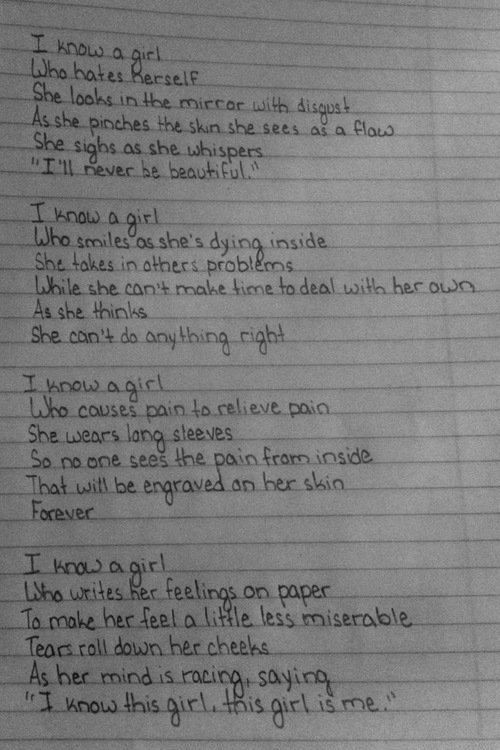 I know a girl
Who hates herself
She looks in the mirror with disgust
As she pinches the skin she sees as a flaw
She sighs as she whispers
"I'll never be beautiful."
I know a girl
Who smiles as she's dying inside
She takes in others problems
While she can't make time to deal with her own
As she thinks
She can't do anything right
I know a girl
Who causes pain to relieve pain
She wears long sleeves
So no one sees the pain from inside
That will be engraved on her skin
Forever
I know a girl
Who writes her feelings on paper
To make her feel a little less miserable
Tears roll down her cheeks
As her mind is racing, saying
"I know this girl, this girl is me."